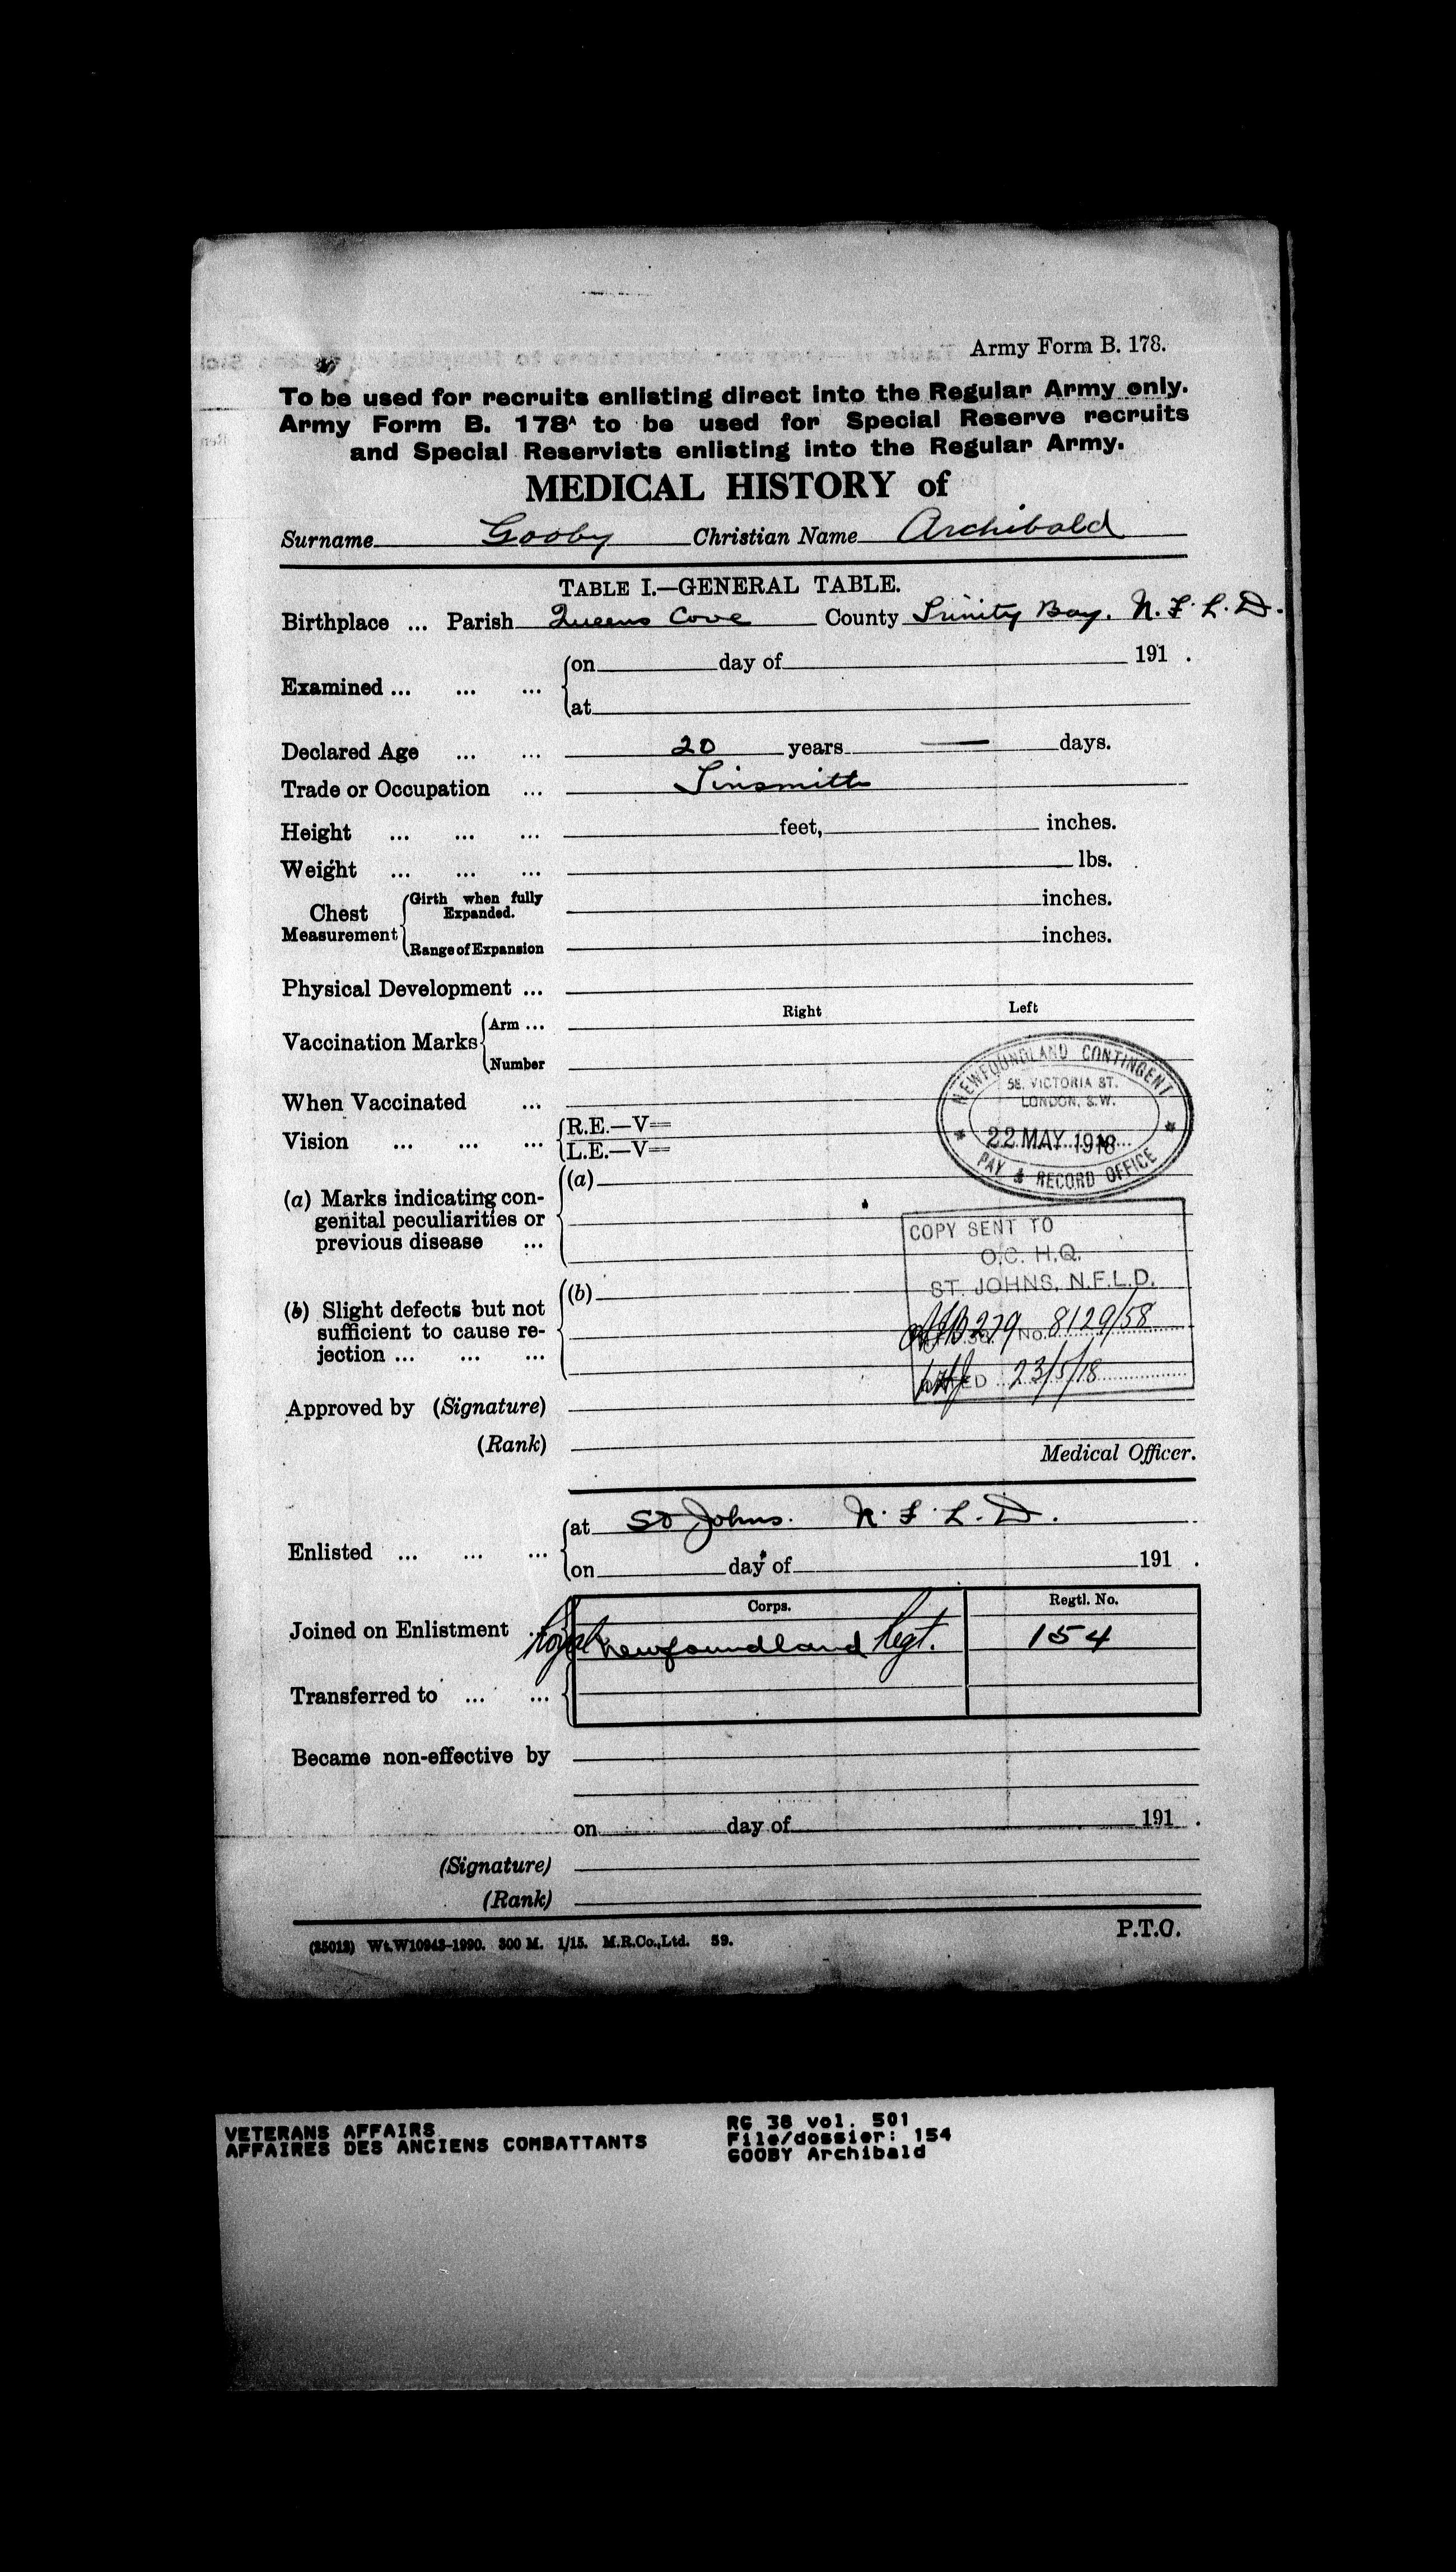 Army Form B. 178.
To be used for recruits enlisting direct into the Regular Army only.
Army Form B. 178A to be used for Special Reserve recruits
and Special Reservists enlisting into the Regular Army.
MEDICAL HISTORY of
Surname Gooby Christian Name Archibald
TABLE I.—GENERAL TABLE.
Birthplace ... Parish Queens Cove County Trinity Bay. N.F.L.D.
Examined ... ... ... on day of 191 .
at
Declared Age ... ... 20 years — days.
Trade or Occupation ... Tinsmith
Height ... ... ... feet, inches.
Weight ... ... ... lbs.
Chest Measurement Girth when fully Expanded. inches.
Range of Expansion inches.
Physical Development ...
Right Left
Vaccination Marks Arm ...
Number
When Vaccinated ...
Vision ... ... ... R.E.—V=
L.E.—V=
NEWFOUNDLAND CONTINGENT
58, VICTORIA ST.
LONDON, S.W.
22 MAY 1918
PAY & RECORD OFFICE
(a) Marks indicating con-
genital peculiarities or
previous disease ...
(a)
COPY SENT TO
O.C. H.Q.
ST. JOHNS, N.F.L.D.
279 No. 8129/58
DATED 23/5/18
(b) Slight defects but not
sufficient to cause re-
jection ... ... ...
(b)
Approved by (Signature)
(Rank)
Medical Officer.
Enlisted ... ... ... at St Johns. N.F.L.D.
on day of 191 .
Corps. Regtl. No.
Joined on Enlistment Royal Newfoundland Regt. 154
Transferred to ... ...
Became non-effective by
on day of 191 .
(Signature)
(Rank)
P.T.O.
(25012) Wt.W10943-1990. 300 M. 1/15. M.R.Co.,Ltd. 59.
VETERANS AFFAIRS RG 38 vol. 501
AFFAIRES DES ANCIENS COMBATTANTS File/dossier: 154
GOOBY Archibald